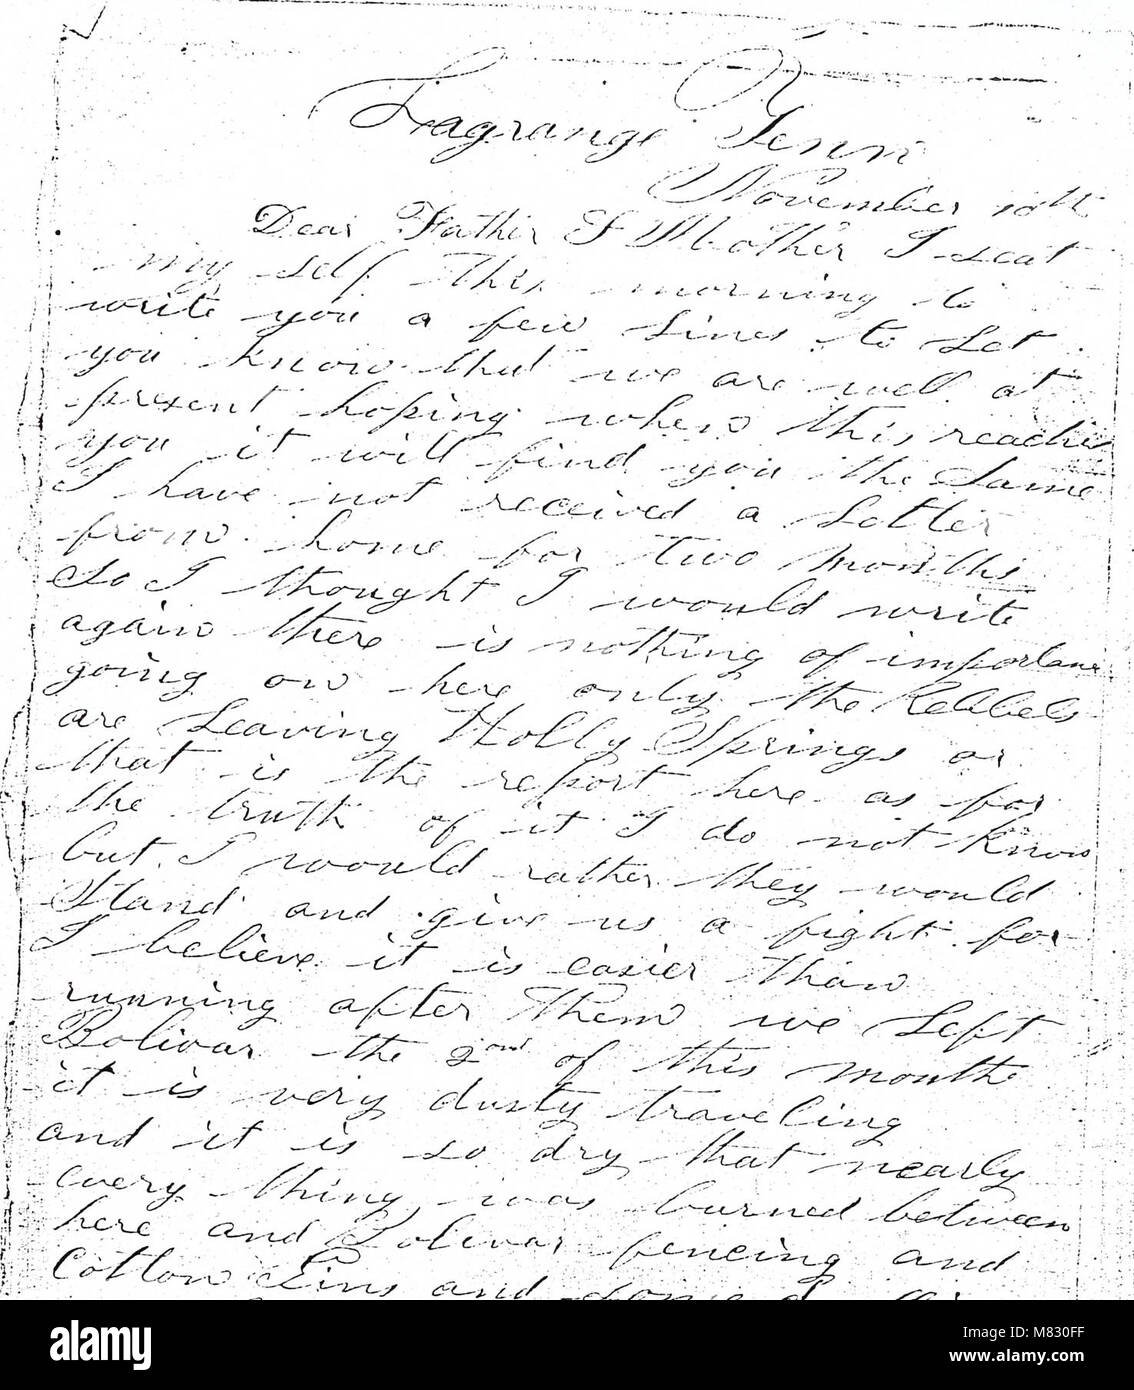 Lagrange Tenn
November 10th
Dear Father & Mother I seat
my self this morning to
write you a few lines to let
you know that we are well at
present hoping when this reaches
you it will find you the same
I have not received a letter
from home for two months
so I thought I would write
again there is nothing of importanc
going on here only the Rebbels
are leaving Holly Springs or
that is the report here as for
the truth of it I do not know
but I would rather they would
stand and give us a fight for
I believe it is easier than
running after them we left
Bolivar the 2ond of this month
it is very dusty traveling
and it is so dry that nearly
every thing was burned between
here and Bolivar fencing and
Cotton Gins and some
alamy
Image ID: M830FF
www.alamy.com